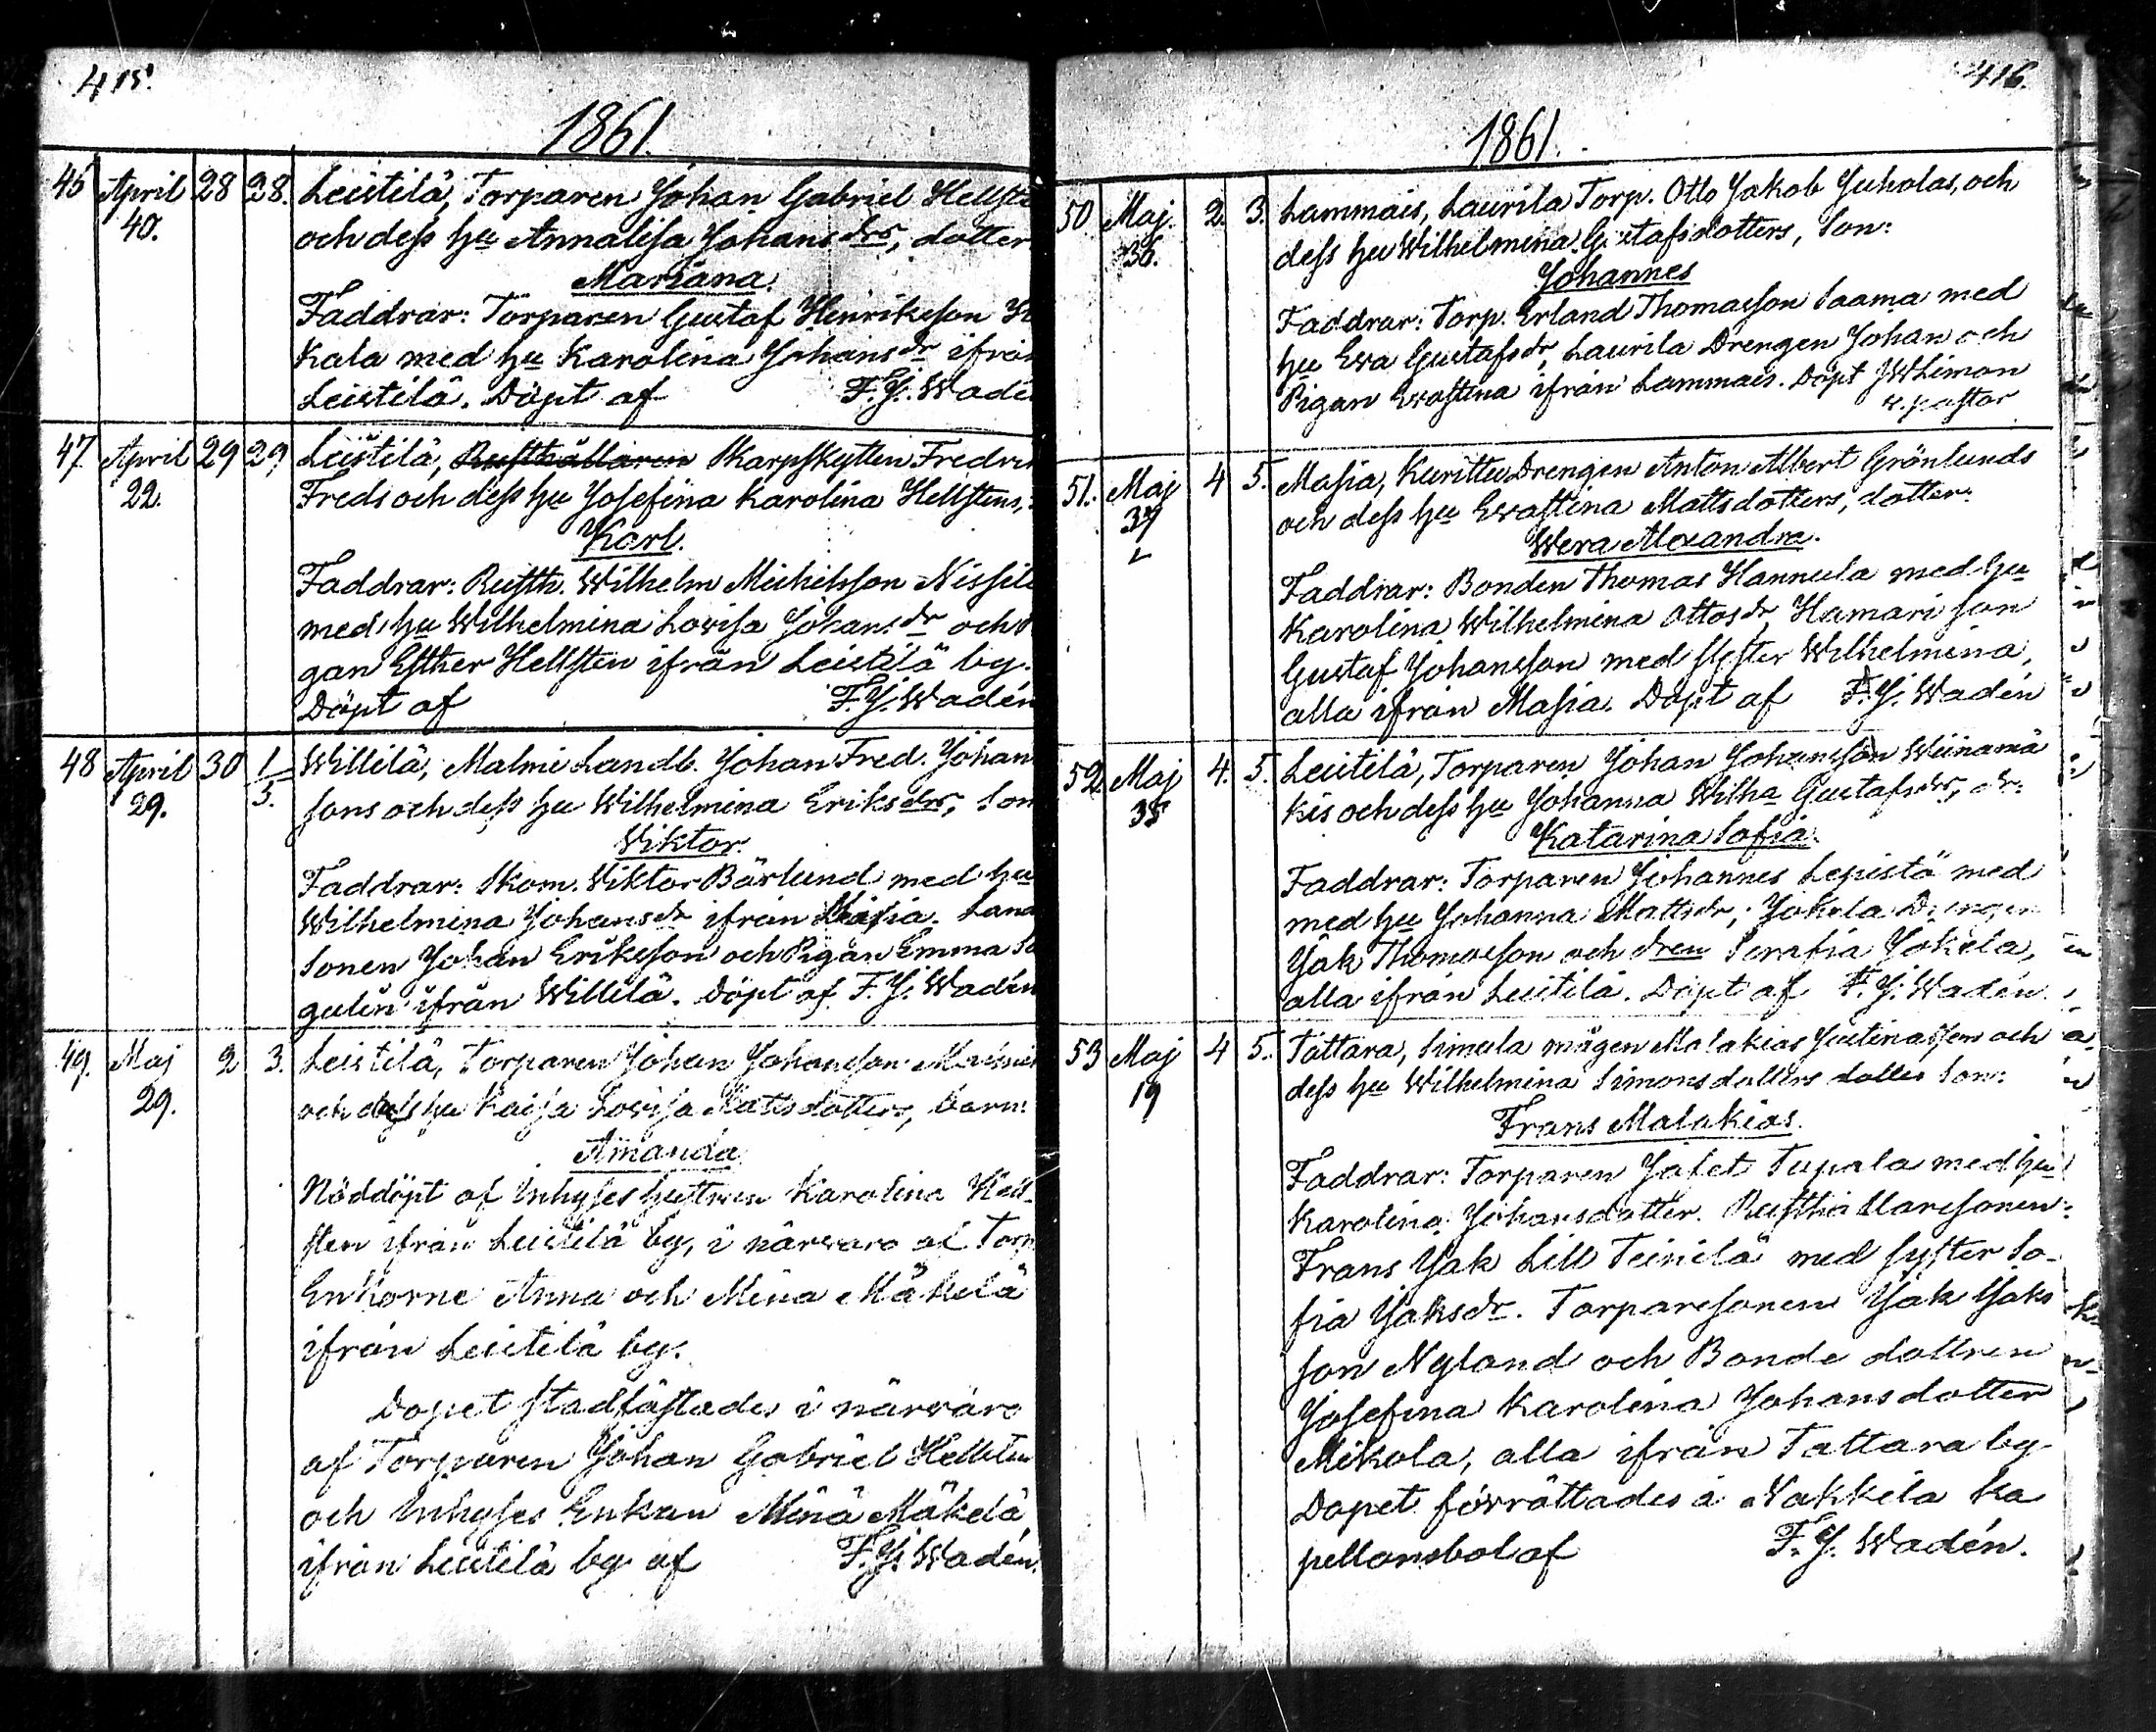 415.
1861.
45 April 28 28. Leistilä, Torparen Johan Gabriel Hellste
40. och dess hu Annalisa Johansdrs, dotter
Mariana.
Faddrar: Torparen Gustaf Henriksson
Kala med hu Karolina Johansdr ifrån
Leistilä. Döpt af F. J. Wadé
47. April 29 29. Leistilä, Rusthållaren Skarpskytten Fredri
22. Freds och dess hu Josefina Karolina Hellstens,
Karl.
Faddrar: Rusth. Wilhelm Michelsson Nissilä
med hu Wilhelmina Lovisa Johansdr och
gan Esther Hellsten ifrån Leistilä by.
Döpt af F. J. Wadén
48 April 30 1/5. Willilä, Malmi Landb. Johan Fred. Johan
29. sons och dess hu Wilhelmina Eriksdrs, Son
Viktor.
Faddrar: Skom. Viktor Bärlund med hu
Wilhelmina Johansdr ifrån Masia. Land
Sonen Johan Eriksson och Pigan Emma
gulin ifrån Willilä. Döpt af F. J. Wadén
49. Maj 2 3. Leistilä, Torparen Johan Johansson
29. och dess hu Kaisa Lovisa Mattsdotters, barn:
Amanda
Nöddöpt af Inhyses hustrun Karolina Hell-
sten ifrån Leistilä by, i närvaro af Torp
Enkorne Anna och Mina Mäkelä
ifrån Leistilä by.
Dopet stadfästades i närvaro
af Torparen Johan Gabriel Hellsten
och Inhyses Enkan Mina Mäkelä
ifrån Leistilä by af F. J. Wadén.
416.
1861.
50. Maj. 2. 3. Lammais, Laurila Torp. Otto Jakob Juholas, och
36. dess hu Wilhelmina Gustafsdotters, Son:
Johannes
Faddrar: Torp. Erland Thomasson Saama med
hu Eva Gustafsdr, Laurila Drengen Johan och
Pigan Evastina ifrån Lammais. Döpt J W Liman
v. pastor
51. Maj 4 5. Masia, Kurittu Drengen Anton Albert Grönlunds
37 och dess hu Evastina Mattsdotters, dotter:
Wera Alexandra.
Faddrar: Bonden Thomas Hannula med hu
Karolina Wilhelmina Ottosdr, Hamari son
Gustaf Johansson med syster Wilhelmina,
alla ifrån Masia. Döpt af F. J. Wadén
52. Maj 4. 5. Leistilä, Torparen Johan Johansson Wiinamä
35 kis och dess hu Johanna Wilha Gustafsdrs, dr.
Katarina Sofia.
Faddrar: Torparen Johannes Lepistö med
med hu Johanna Mattsdr, Jokela Drengen
Jak Thomasson och dren Serafia Jokela,
alla ifrån Leistilä. Döpt af F. J. Wadén.
53 Maj 4 5. Tattara, Simula mågen Malakias Justinassens och
19 dess hu Wilhelmina Simonsdotters dotter Son:
Frans Malakias.
Faddrar: Torparen Jafet Tupala med hu
Karolina Johansdotter. Rusthållaresonen:
Frans Jak Lill Teinilä med syster So-
fia Jaksdr. Torparesonen Jak Jaks
son Nyland och Bonde dottren
Josefina Karolina Johansdotter
Mikola, alla ifrån Tattara by
Dopet förrättades å Nakkila ka
pellansbol af F. J. Wadén.